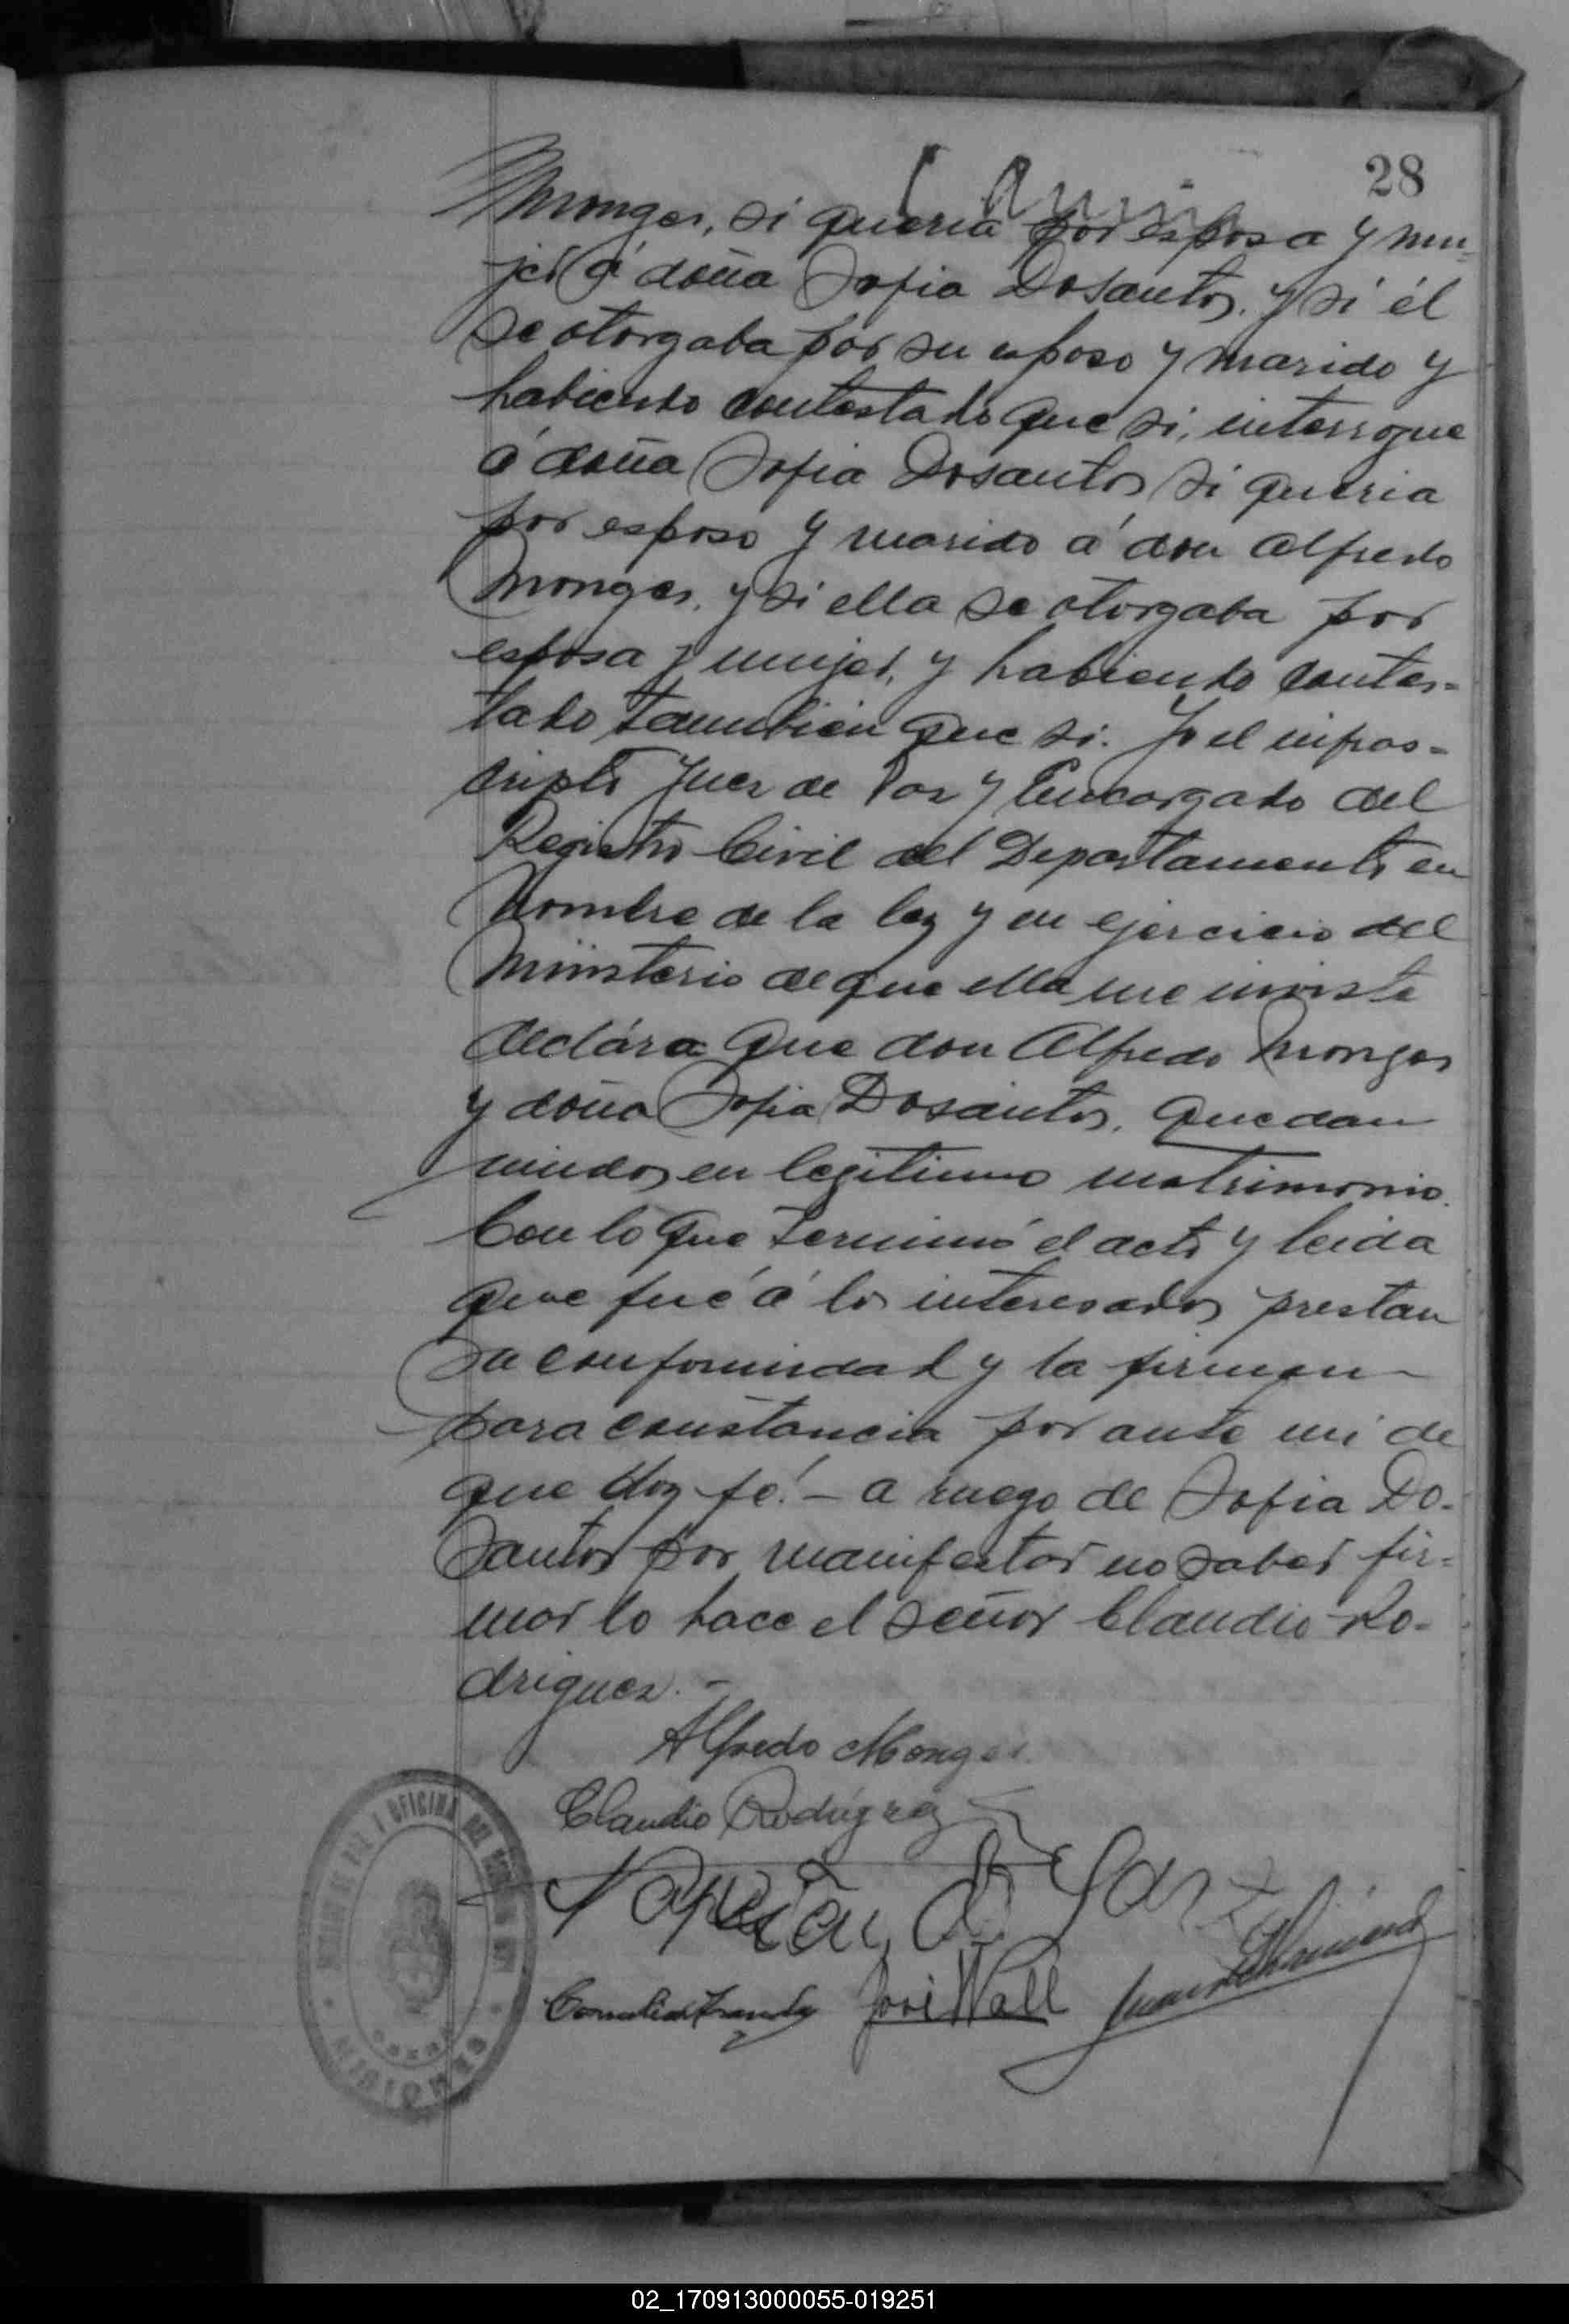 28
Monges, si queria por esposa y mu=
jer á doña Sofia Dosantos, y si él
se otorgaba por su esposo y marido y
habiendo contestado que si, interrogue
á doña Sofia Dosantos si queria
por esposo y marido á don Alfredo
Monges, y si ella se otorgaba por
esposa y mujer, y habiendo contes=
tado tambien que si. Yo el infras=
cripto Juez de Paz y Encargado del
Registro Civil del Departamento en
Nombre de la ley y en ejercicio del
Ministerio de que ella me inviste
declára que don Alfredo Monges
y doña Sofia Dosantos, quedan
unidos en legitimo matrimonio.
Con lo que terminó el acto y leida
que fué á los interesados prestan
su conformidad y la firman
para constancia por ante mi de
que doy fé. – a ruego de Sofia Do=
santos por manifestar no saber fir=
mar lo hace el señor Claudio Ro=
driguez. –
Alfredo Monges
Claudio Rodriguez
José Wall
OFICINA DEL
MISIONES
02_170913000055-019251